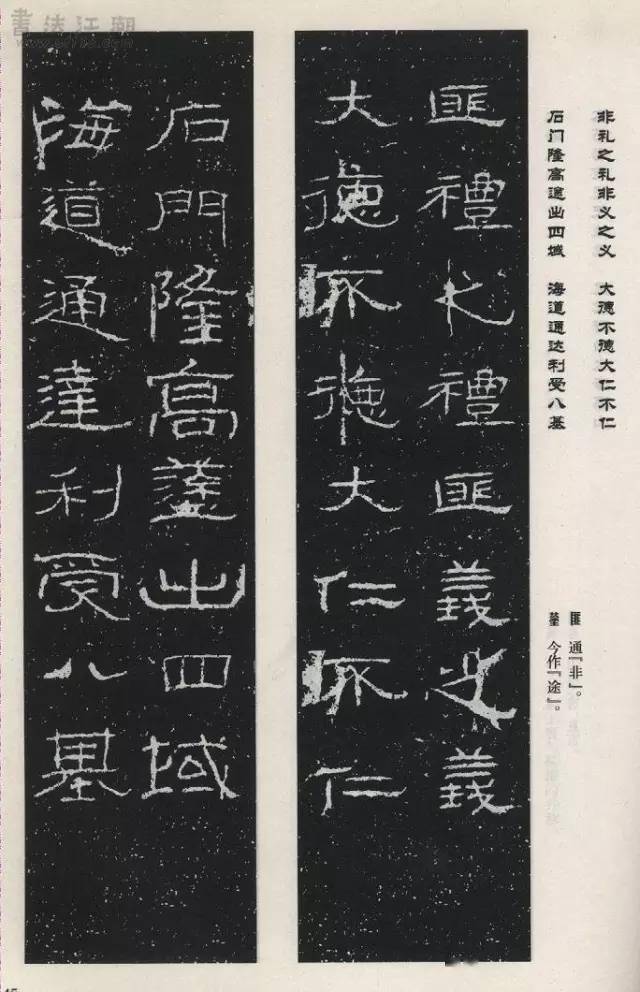 書法江湖
非礼之礼非义之义 大德不德大仁不仁
石门隆高途出四域 海道通达利受八基
匪 通『非』。
今作『途』。
匪禮之禮匪義之義
大德不德大仁不仁
石門隆高出四域
海道通達利受八基